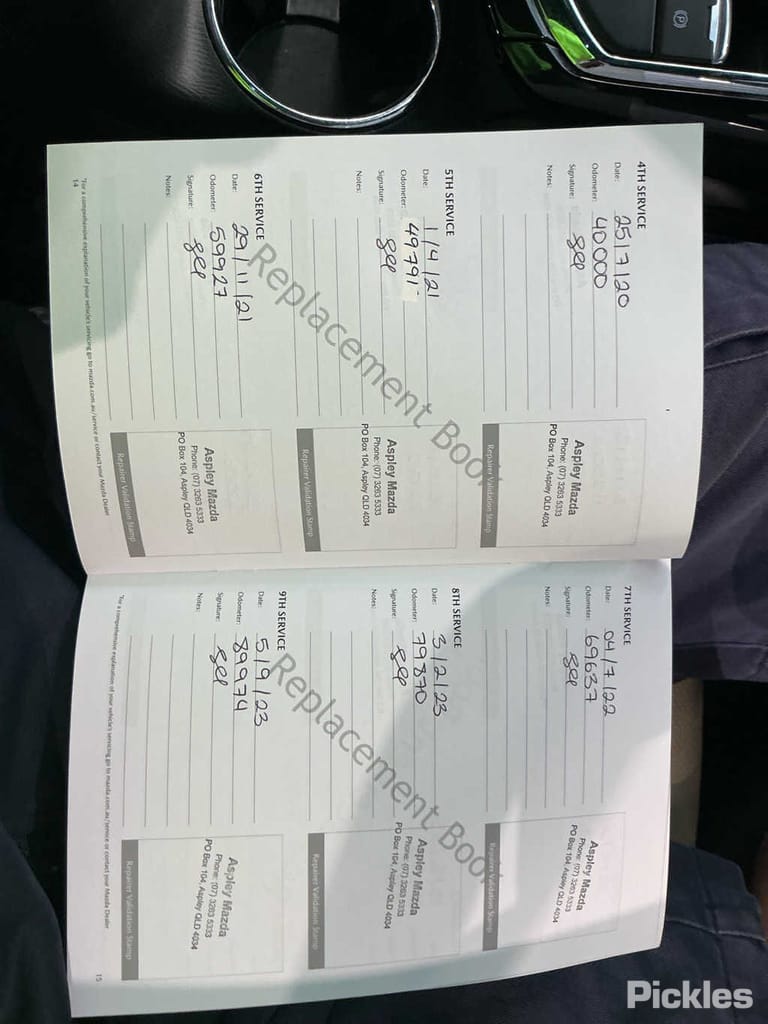 4TH SERVICE
Date: 25/7/20
Odometer: 40000
Signature:
Notes:
Aspley Mazda
Phone: (07) 3263 5333
PO Box 104, Aspley QLD 4034
Repairer Validation Stamp
5TH SERVICE
Date: 1/4/21
Odometer: 49791
Signature:
Notes:
Aspley Mazda
Phone: (07) 3263 5333
PO Box 104, Aspley QLD 4034
Repairer Validation Stamp
6TH SERVICE
Date: 29/11/21
Odometer: 59927
Signature:
Notes:
Aspley Mazda
Phone: (07) 3263 5333
PO Box 104, Aspley QLD 4034
Repairer Validation Stamp
Replacement Book
*For a comprehensive explanation of your vehicle's servicing go to mazda.com.au/service or contact your Mazda Dealer
14
7TH SERVICE
Date: 04/7/22
Odometer: 69637
Signature:
Notes:
Aspley Mazda
Phone: (07) 3263 5333
PO Box 104, Aspley QLD 4034
Repairer Validation Stamp
8TH SERVICE
Date: 3/2/23
Odometer: 79870
Signature:
Notes:
Aspley Mazda
Phone: (07) 3263 5333
PO Box 104, Aspley QLD 4034
Repairer Validation Stamp
9TH SERVICE
Date: 5/9/23
Odometer: 89974
Signature:
Notes:
Aspley Mazda
Phone: (07) 3263 5333
PO Box 104, Aspley QLD 4034
Repairer Validation Stamp
Replacement Book
*For a comprehensive explanation of your vehicle's servicing go to mazda.com.au/service or contact your Mazda Dealer
15
P
Pickles